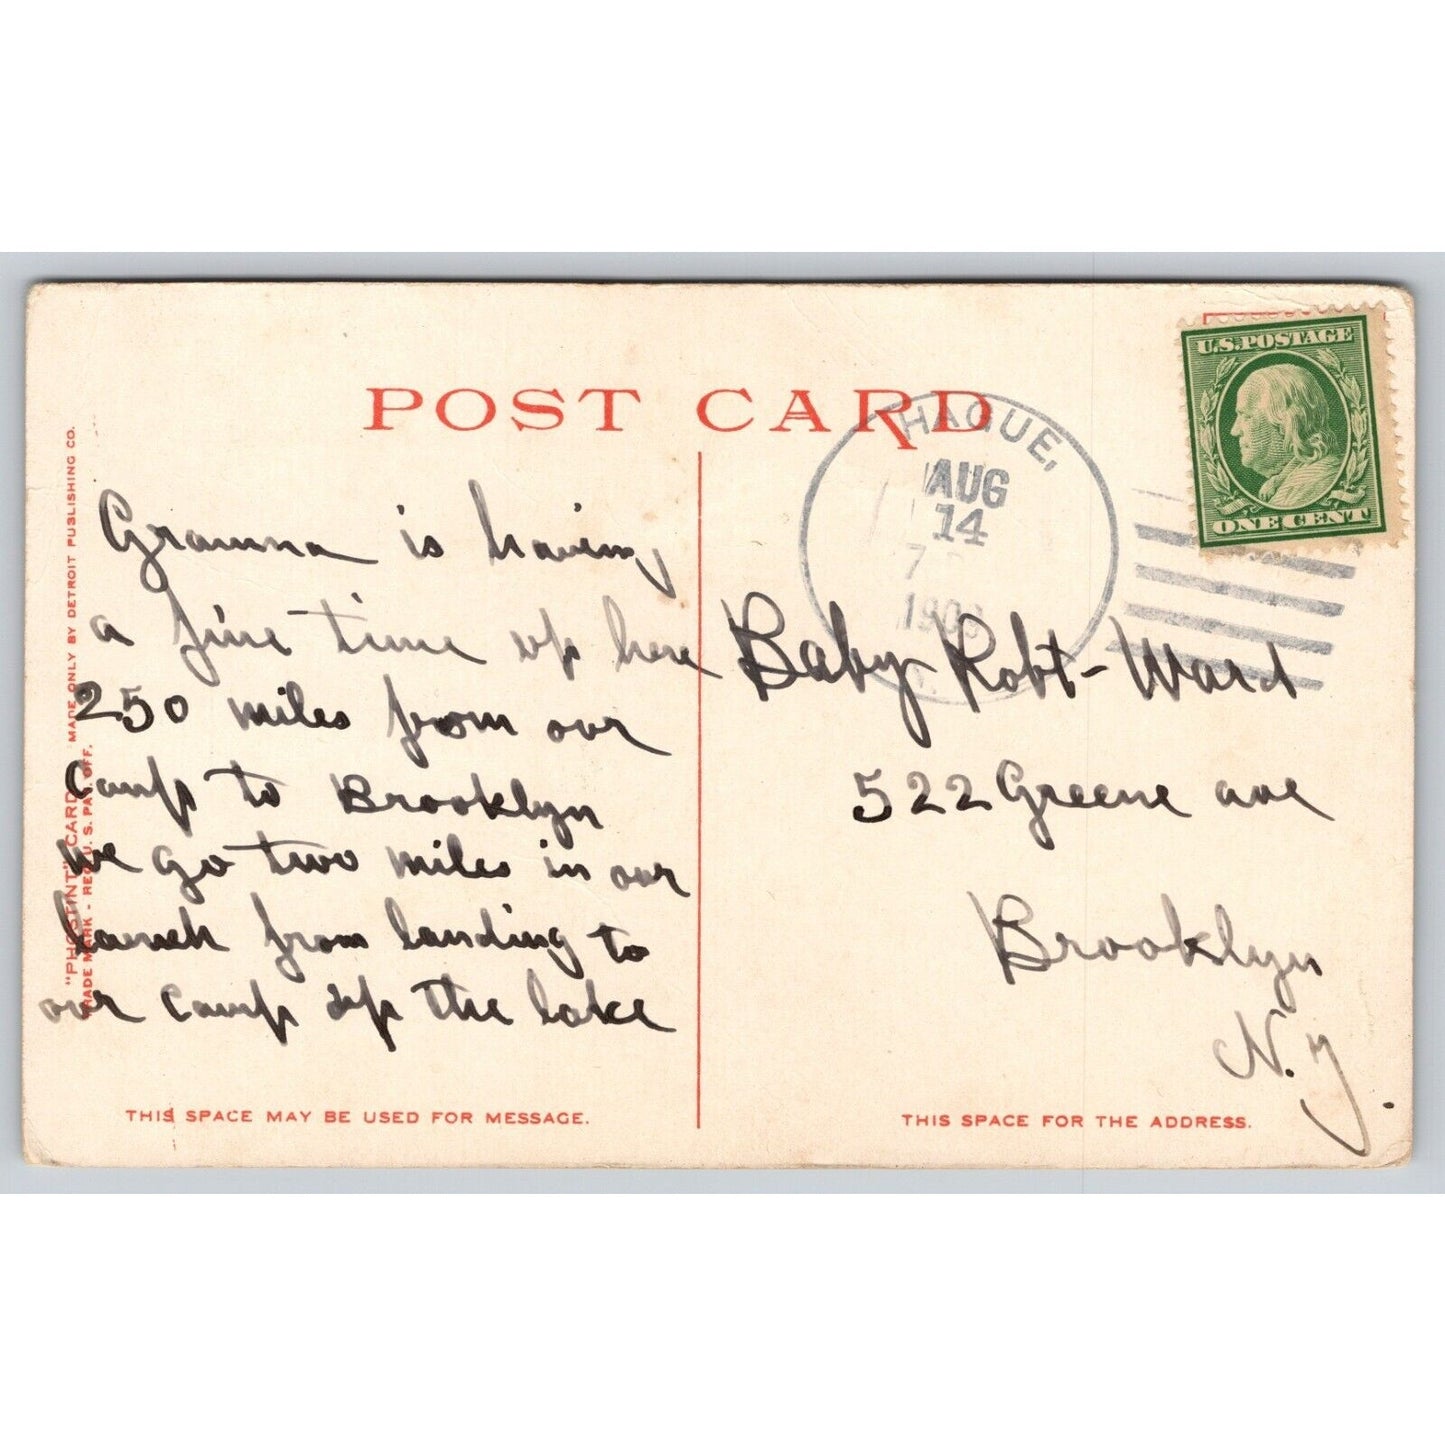 POST CARD
U.S. POSTAGE
ONE CENT
HAGUE,
AUG
14
7
Granma is having
a fine time up here
250 miles from our
Camp to Brooklyn
we go two miles in our
launch from landing to
our camp up the lake
Baby Robt - Ward
522 Greene ave
Brooklyn
N.Y.
"PHOSTINT" CARD MADE ONLY BY DETROIT PUBLISHING CO.
TRADE MARK - REG. U. S. PAT. OFF.
THIS SPACE MAY BE USED FOR MESSAGE.
THIS SPACE FOR THE ADDRESS.